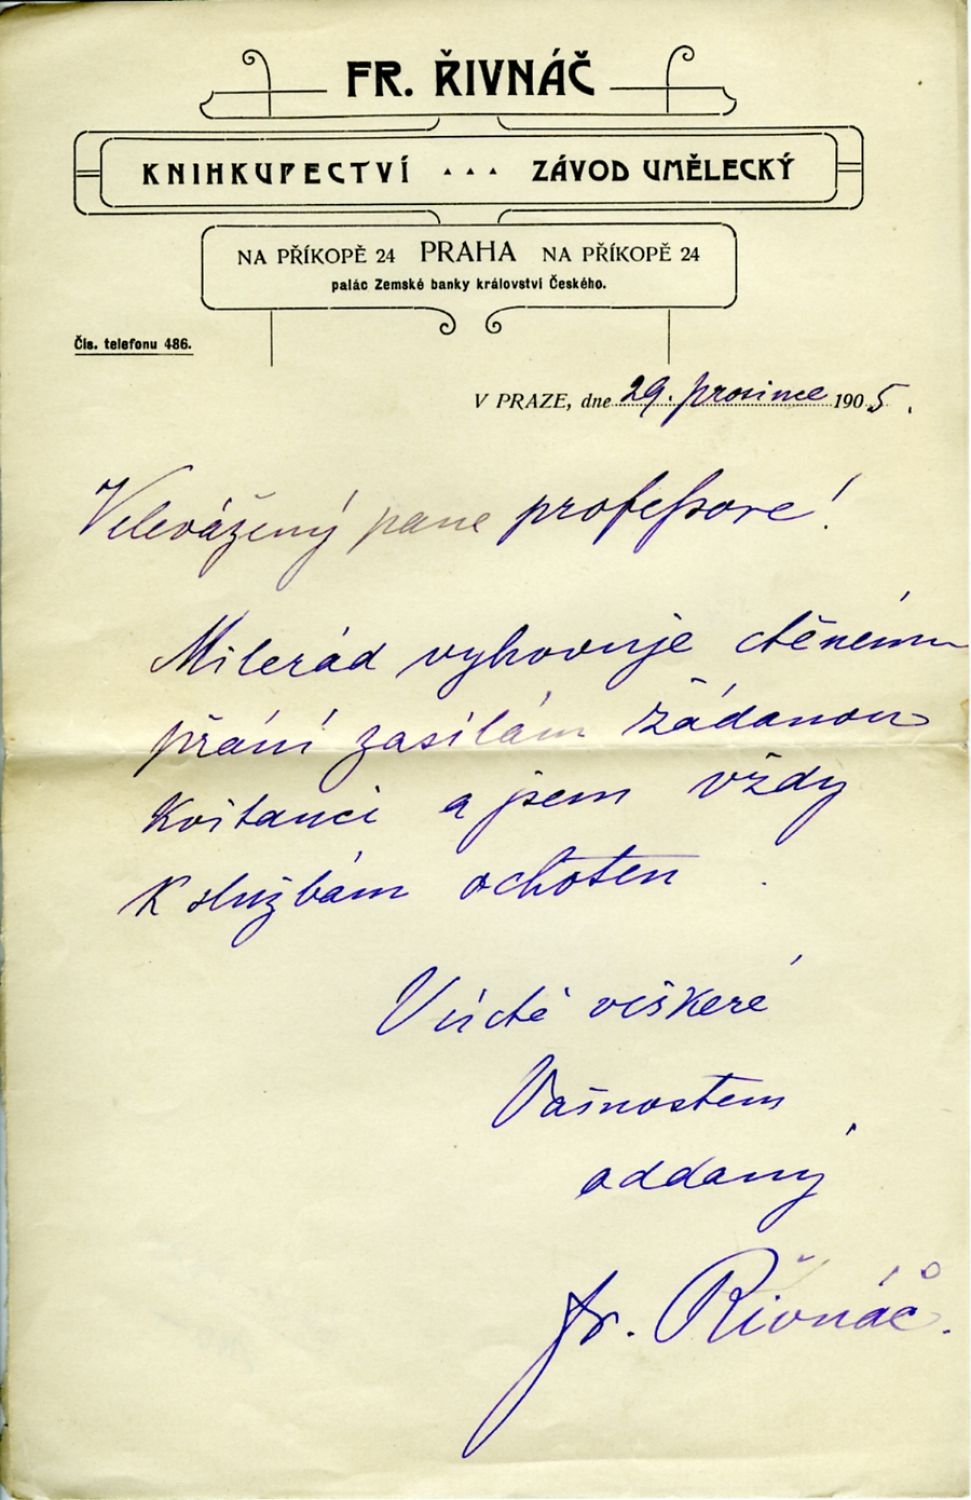 FR. ŘIVNÁČ
KNIHKUPECTVÍ ... ZÁVOD UMĚLECKÝ
NA PŘÍKOPĚ 24 PRAHA NA PŘÍKOPĚ 24
palác Zemské banky království Českého.
Čís. telefonu 486.
V PRAZE, dne 29. prosince 1905.
Velevážený pane professore!
Milerád vyhovuje ctěnému
přání zasílám žádanou
kvitanci a jsem vždy
k službám ochoten.
V úctě veškeré
Vašnostem
oddaný
Fr. Řivnáč.